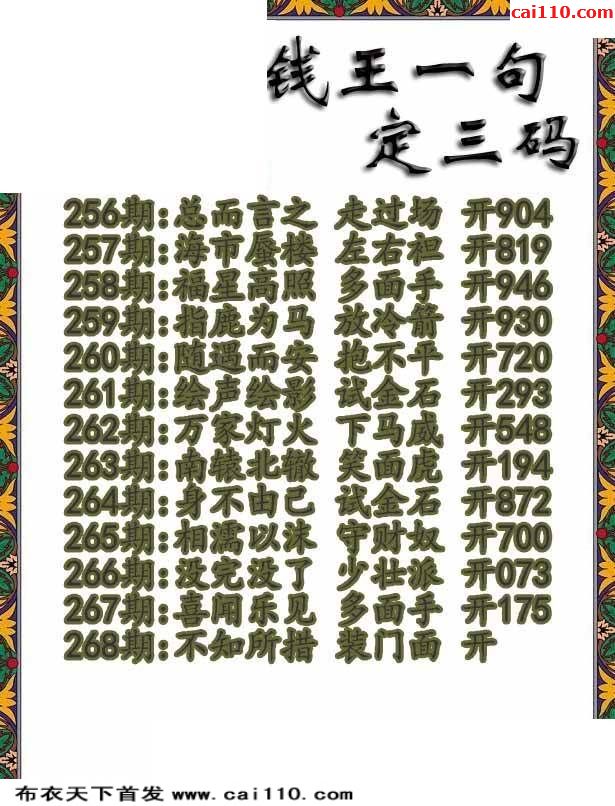 cai110.com
钱王一句
定三码
256期:总而言之 走过场 开904
257期:海市蜃楼 左右袒 开819
258期:福星高照 多面手 开946
259期:指鹿为马 放冷箭 开930
260期:随遇而安 抱不平 开720
261期:绘声绘影 试金石 开293
262期:万家灯火 下马威 开548
263期:南辕北辙 笑面虎 开194
264期:身不由己 试金石 开872
265期:相濡以沫 守财奴 开700
266期:没完没了 少壮派 开073
267期:喜闻乐见 多面手 开175
268期:不知所措 装门面 开
布衣天下首发 www.cai110.com